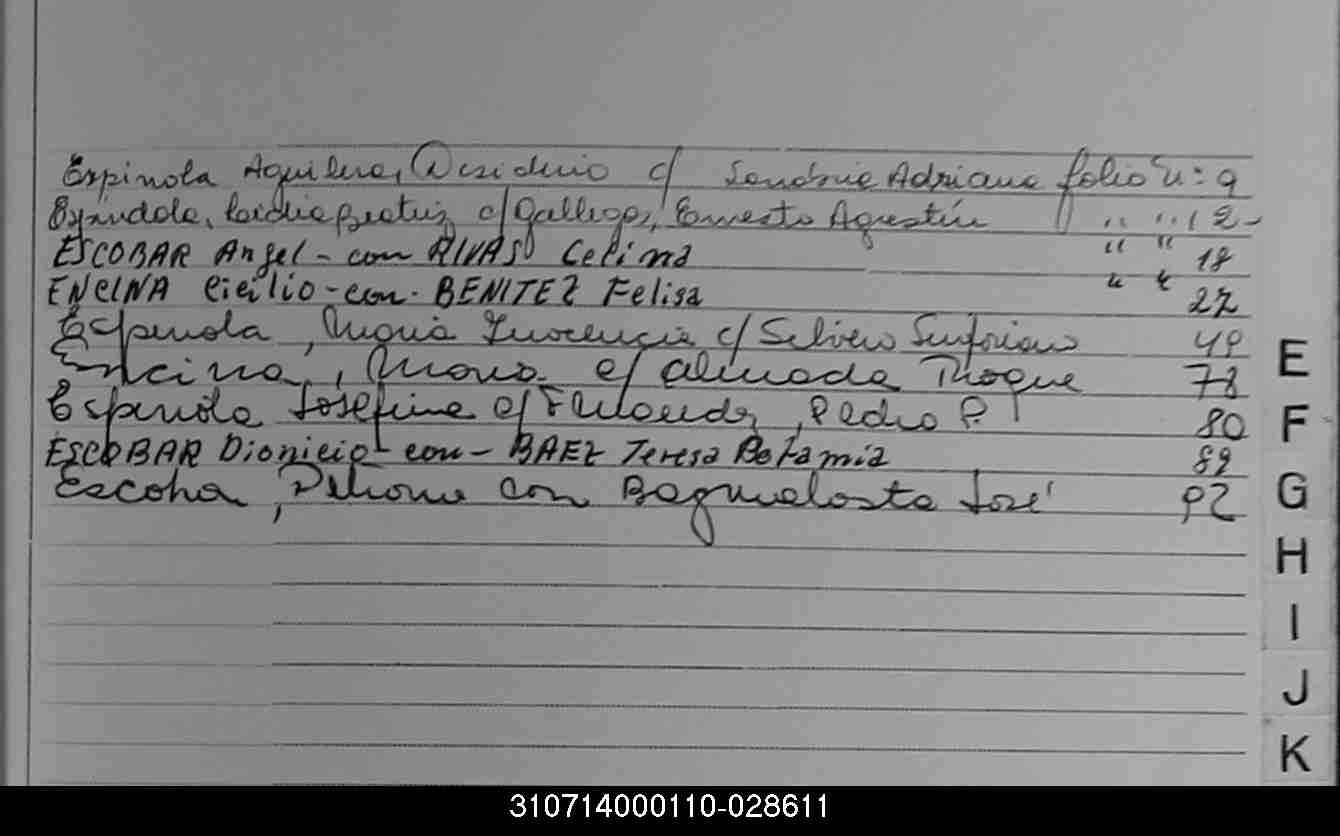 Espinola Aquilera, Desiderio c/ Adriana folio n: 9
Beatriz c/ Gallego, Ernesto Agustín " " 12-
ESCOBAR Angel - con RIVAS Cefina " " 18
ENCINA Cicilio - con - BENITEZ Felisa " " 27
Espinola, Maria Inocencia c/ Silvero Sinforiano 49
Encina, Maria c/ Almada Roque 78
Espinola Josefina c/ Pedro P. 80
ESCOBAR Dionicio - con - BAEZ Teresa 89
con José 92
E
F
G
H
I
J
K
310714000110-028611